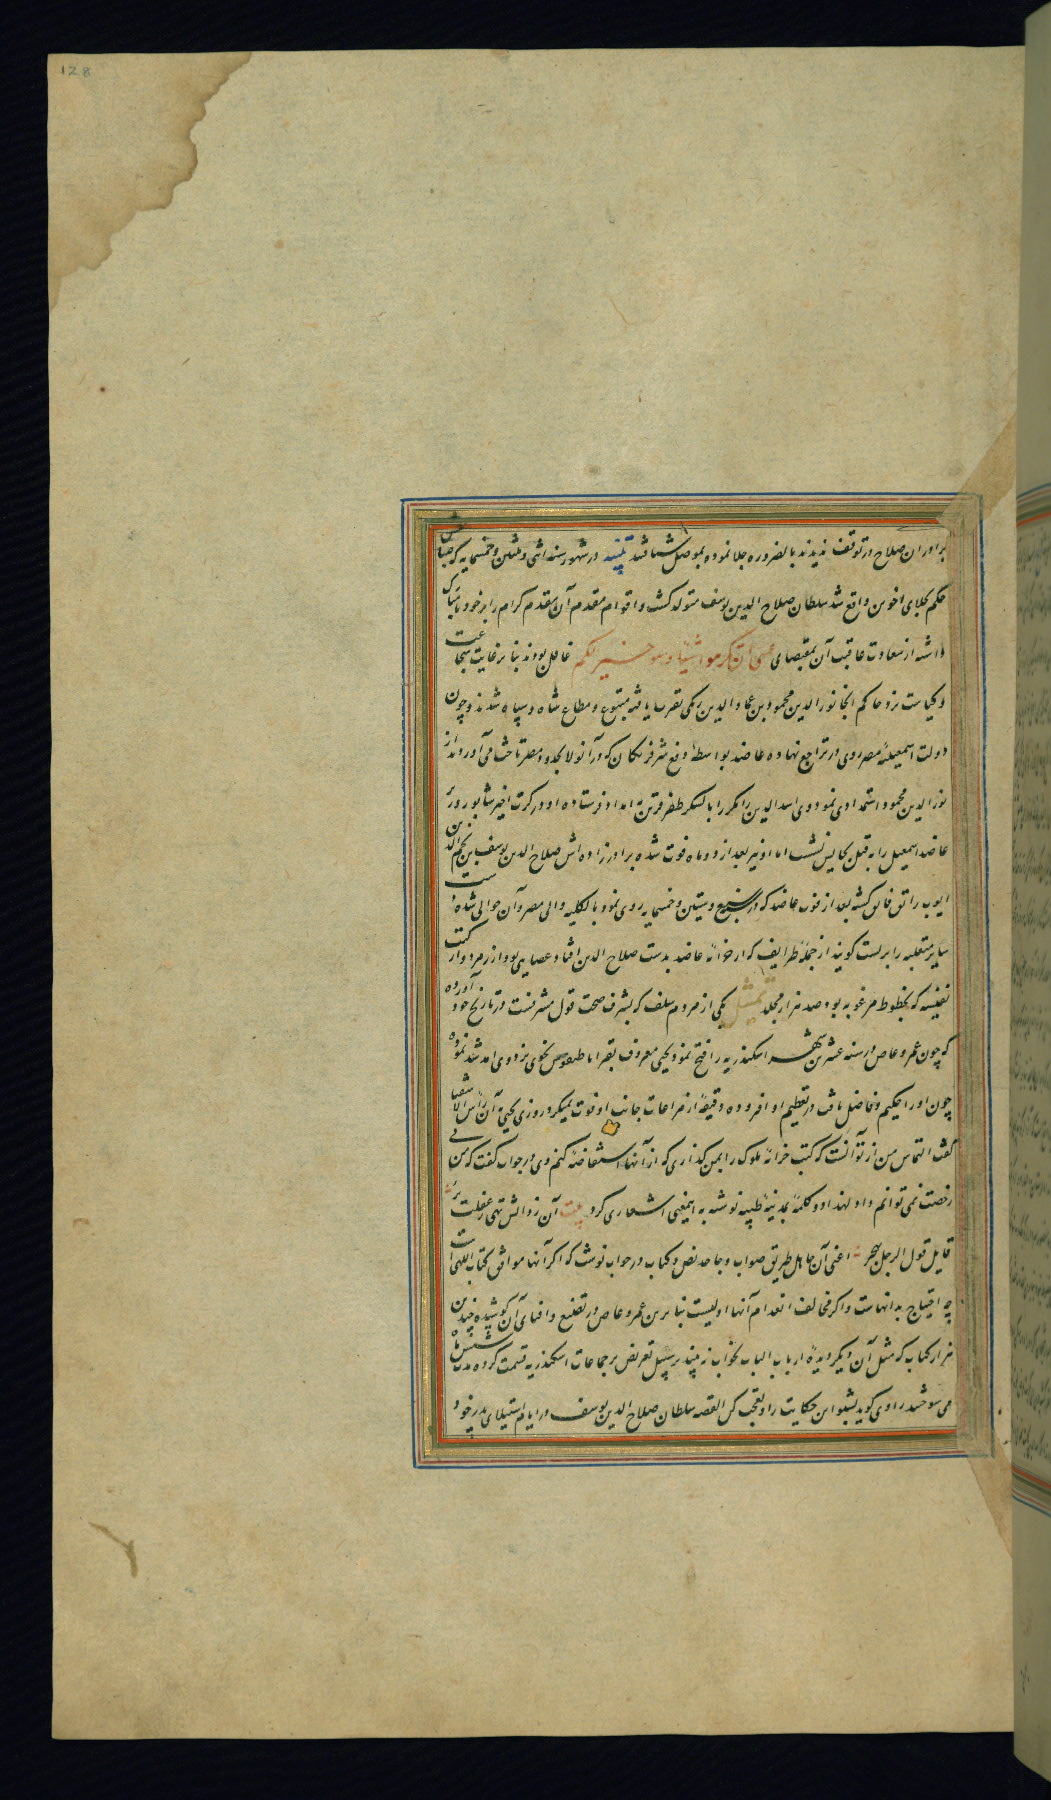 128
برادران صلاح در توقف ندیدند بالضروره جلا نموده بموصل شتافتند تنبیه در شهور سنه اثنی و ثلثین و خمسمایه که
حکم بجلای اخوین واقع شد سلطان صلاح الدین یوسف متولد کشت و اقوام مقدم آن مقدم کرام را بر خود نامبارک
داشته از سعادت عاقبت آن بمقتضای عسی ان تکرهوا شیئا و هو خیر لکم غافل بودند بنابر غایت شجاعت
و کیاست نزد حاکم انجا نورالدین محمود بن عماد الدین زنکی تقرب یافته متبوع و مطاع شاه و سپاه شدند و چون
دولت اسمعیلیه مصر روی در تراجع نهاده عاضد بواسطه دفع شر فرنکان که در آنولا بحدود مصر تاخت می آوردند از
نورالدین محمود استمداد نمود وی اسدالدین را مکرر با لشکر ظفر قرین به امداد فرستاده او در کرت اخیر شاپور وزیر
عاضد اسمعیل را به قتل بجایش نشست اما او نیز بعد از دو ماه فوت شده برادر زاده اش صلاح الدین یوسف بن نجم الدین
ایوب راتق فاتق کشته بعد از فوت عاضد که در سبع و ستین و خمسمایه روی نمود بالکلیه والی مصر و آن حوالی شده دست
سایر متغلبه را بربست کویند از جمله ظرایف که از خزانه عاضد بدست صلاح الدین افتاد عصایی بود از زمرد و از کتب
نفیسه که بخطوط مرغوبه بود صد هزار مجلد تمثیل یکی از مردم سلف که بشرف صحت قول مشرفست در تاریخ خود آورده
که چون عمرو عاص در سنه عشرین شهر اسکندریه را فتح نمود یحیی معروف بقراماطیقوس نحوی نزد وی امد شد نموده
چون او را حکیم و فاضل یافت در تعظیم او افزوده دقیقه از مراعات جانب او فوت نمیکرد روزی یحیی آن رأس الاشقیا
کفت التماس من از تو آنست که کتب خزانه ملوک را بمن کذاری که از آنها استفاضه کنم وی در جواب کفت که من بی
رخصت نمی توانم داد لهذا دو کلمه بمدینه طیبه نوشته به اینمعنی اشعاری کرد بیت آن ز دانش تهی ز غفلت پر
قایل قول الرجل لیهجر اعنی آن جاهل طریق صواب و جاحد نص و کتاب در جواب نوشت که اکر آنها موافق کتاب اللهی است
چه احتیاج به انهاست و اکر مخالف انعدام آنها اولیست بنابرین عمرو عاص در تضییع و افنای آن کوشیده چندین
هزار کتاب که مثل آن دیکر دیده ارباب الباب بخواب نه بیند بر سبیل تعریض بر حمامات اسکندریه قسمت کرده مدت شش ماه
می سوختند راوی کوید بشنو این حکایت را و تعجب کن القصه سلطان صلاح الدین یوسف در ایام استیلای پدر خود